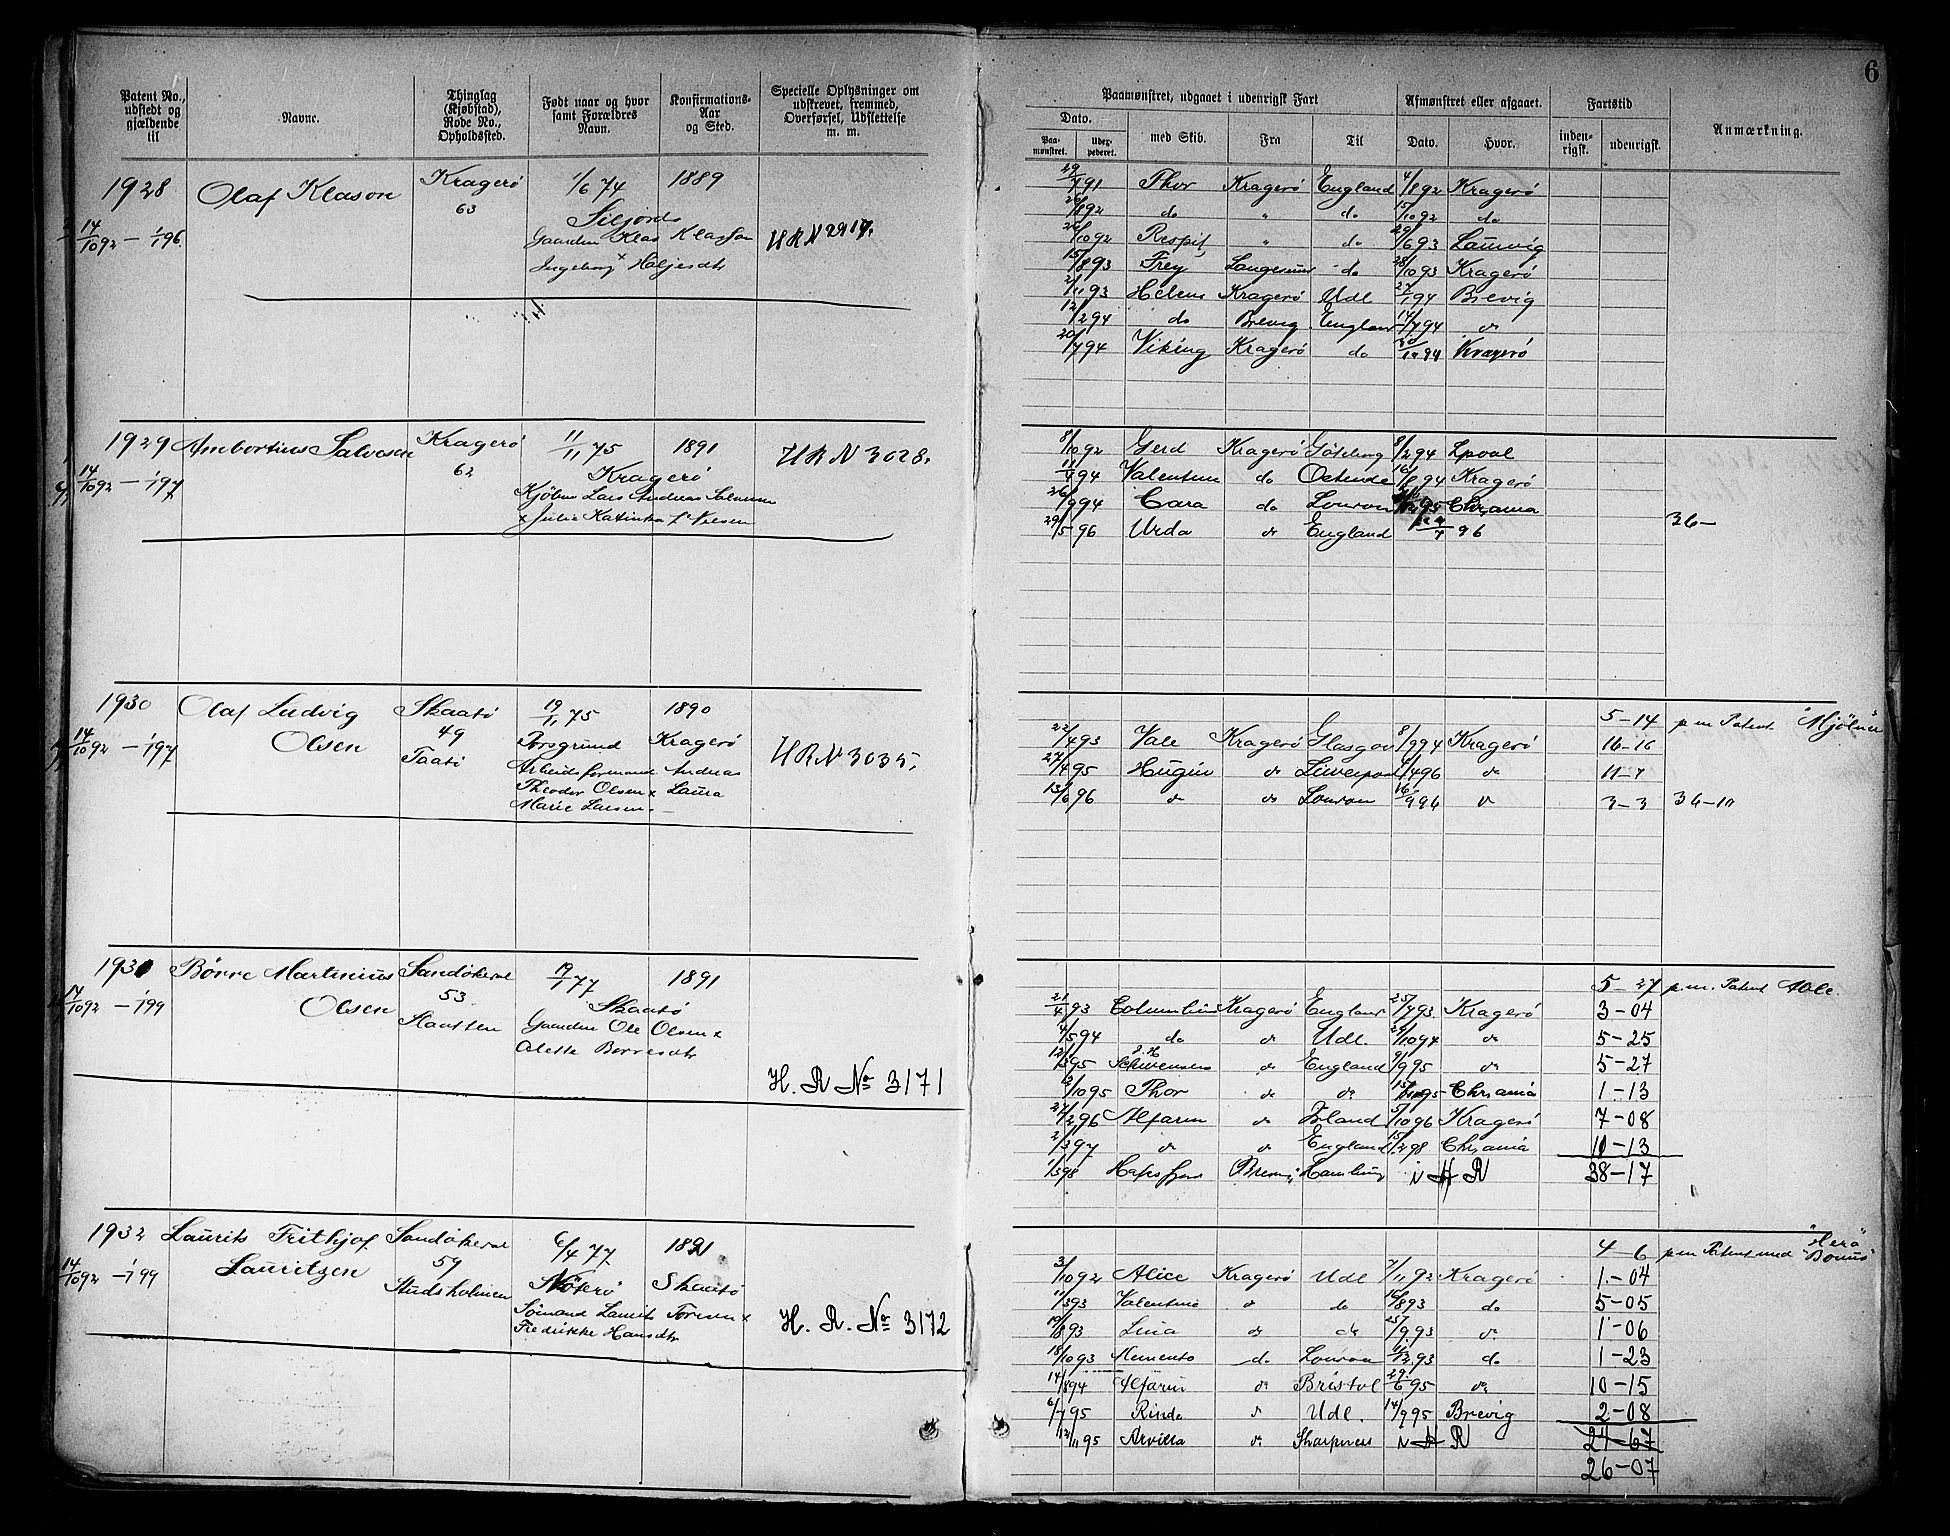 6
Patent No., udstedt og gjældende til
Navne.
Thinglag (Kjøbstad), Rode No., Opholdssted.
Født naar og hvor samt Forældres Navn.
Konfirmations-Aar og Sted.
Specielle Oplysninger om udskrevet, fremmed, Overførsel, Udslettelse m. m.
Paamønstret, udgaaet i udenrigsk Fart
Afmønstret eller afgaaet.
Fartstid
Anmærkning.
Dato.
Paa-mønstret.
Udex-pederet.
med Skib.
Fra
Til
Dato.
Hvor.
inden-rigsk.
udenrigsk.
1928 Olaf Klason Kragerö 1/6 74 1889
63
14/10 92 – 1/1 96. Siljord
Gaardm Klas Klasson H R N 2917.
Ingeborg Haljesdtr
29/7 91 Thor Kragerö England 4/8 92 Kragerö
26/8 92 do " do 15/10 92 do
26/10 92 Respit " do 29/6 93 Laurvig
15/8 93 Frey Langesund do 28/10 93 Kragerö
2/11 93 Helene Kragerö Udl 27/1 94 Brevig
12/2 94 do Brevig England 14/7 94 do
20/7 94 Viking Kragerö do 30/10 94 Kragerö
1929 Ambortius Salvesen Kragerö 11/11 75 1891 H R N 3028.
62
14/10 92 – 1/1 97 Kragerö
Kjöbm Lars Andreas Salvesen
x Julie Katinka
8/10 92 Gerd Kragerö Göteborg 8/2 94 Lpool
11/4 94 Valentine do Ostende 16/8 94 Kragerö
26/9 94 Cara do London 95 Chrania
29/5 96 Urda do England 24/7 96
36 –
1930 Olaf Ludvig Olsen Skaatö 19/11 75 1890
49
14/10 92 – 1/1 97 Taatö Porsgrund Kragerö H R N 3035.
Arbeidsformand Andreas
Theodor Olsen x Laura
Marie Larsen
5–14 p m Patent "Mjölner"
22/4 93 Vale Kragerö Glasgow 8/9 94 Kragerö 16–16
27/4 95 Hugin do Liverpool 4 96 do 11–7
13/6 96 do do London 16/9 96 do 3–3 36–10
1931 Börre Martinius Olsen Sandökedal 19/1 77 1891
53
14/10 92 – 1/1 99 Skaatö
Gaardm Ole Olsen x
Alette Borresdtr
H. R No 3171
5–27 p. m. Patent
21/4 93 Columbus Kragerö England 25/7 93 Kragerö 3–04
4/5 94 do do Udl. 29/10 94 do 5–25
12/3 95 do England 9/9 95 do 5–27
2/10 95 Thor do do 15/11 95 Chrania 1–13
27/2 96 Alfarin do Irland 5/10 96 Kragerö 7–08
2/3 97 do do England 15/2 98 Chrania 10–13
1/3 98 Hafrsfjord Hamburg N H R 38–17
1932 Laurits Frithjof Lauritzen Sandökedal 6/4 77 1891
59
14/10 92 – 1/1 99 Studsholmen Nöterö Skaatö
Sömand Laurits Torsen x
Fredrikke Hansdtr
H. R. No 3172
4–6 p m Patent med "Hera" "Bonus"
3/10 92 Alice Kragerö Udl 7/11 92 Kragerö 1–04
11/3 93 Valentine do do 16/8 93 do 5–05
19/8 93 Lina do do 25/9 93 do 1–06
18/10 93 Memento do London 11/12 93 do 1–23
14/8 94 Alfarin do Bristol 29/6 95 do 10–15
6/7 95 Rinda do Udl. 14/9 95 Brevig 2–08
12/11 95 Arvilla do Sharpness N H R 24–67
26–07